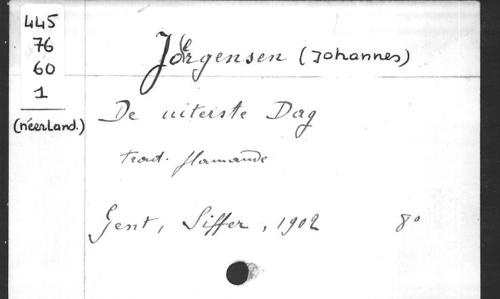 445
76
60
1
(néerland.)
Jörgensen (Johannes)
De uiterste Dag
trad. flamande
Gent, Siffer, 1902 8°